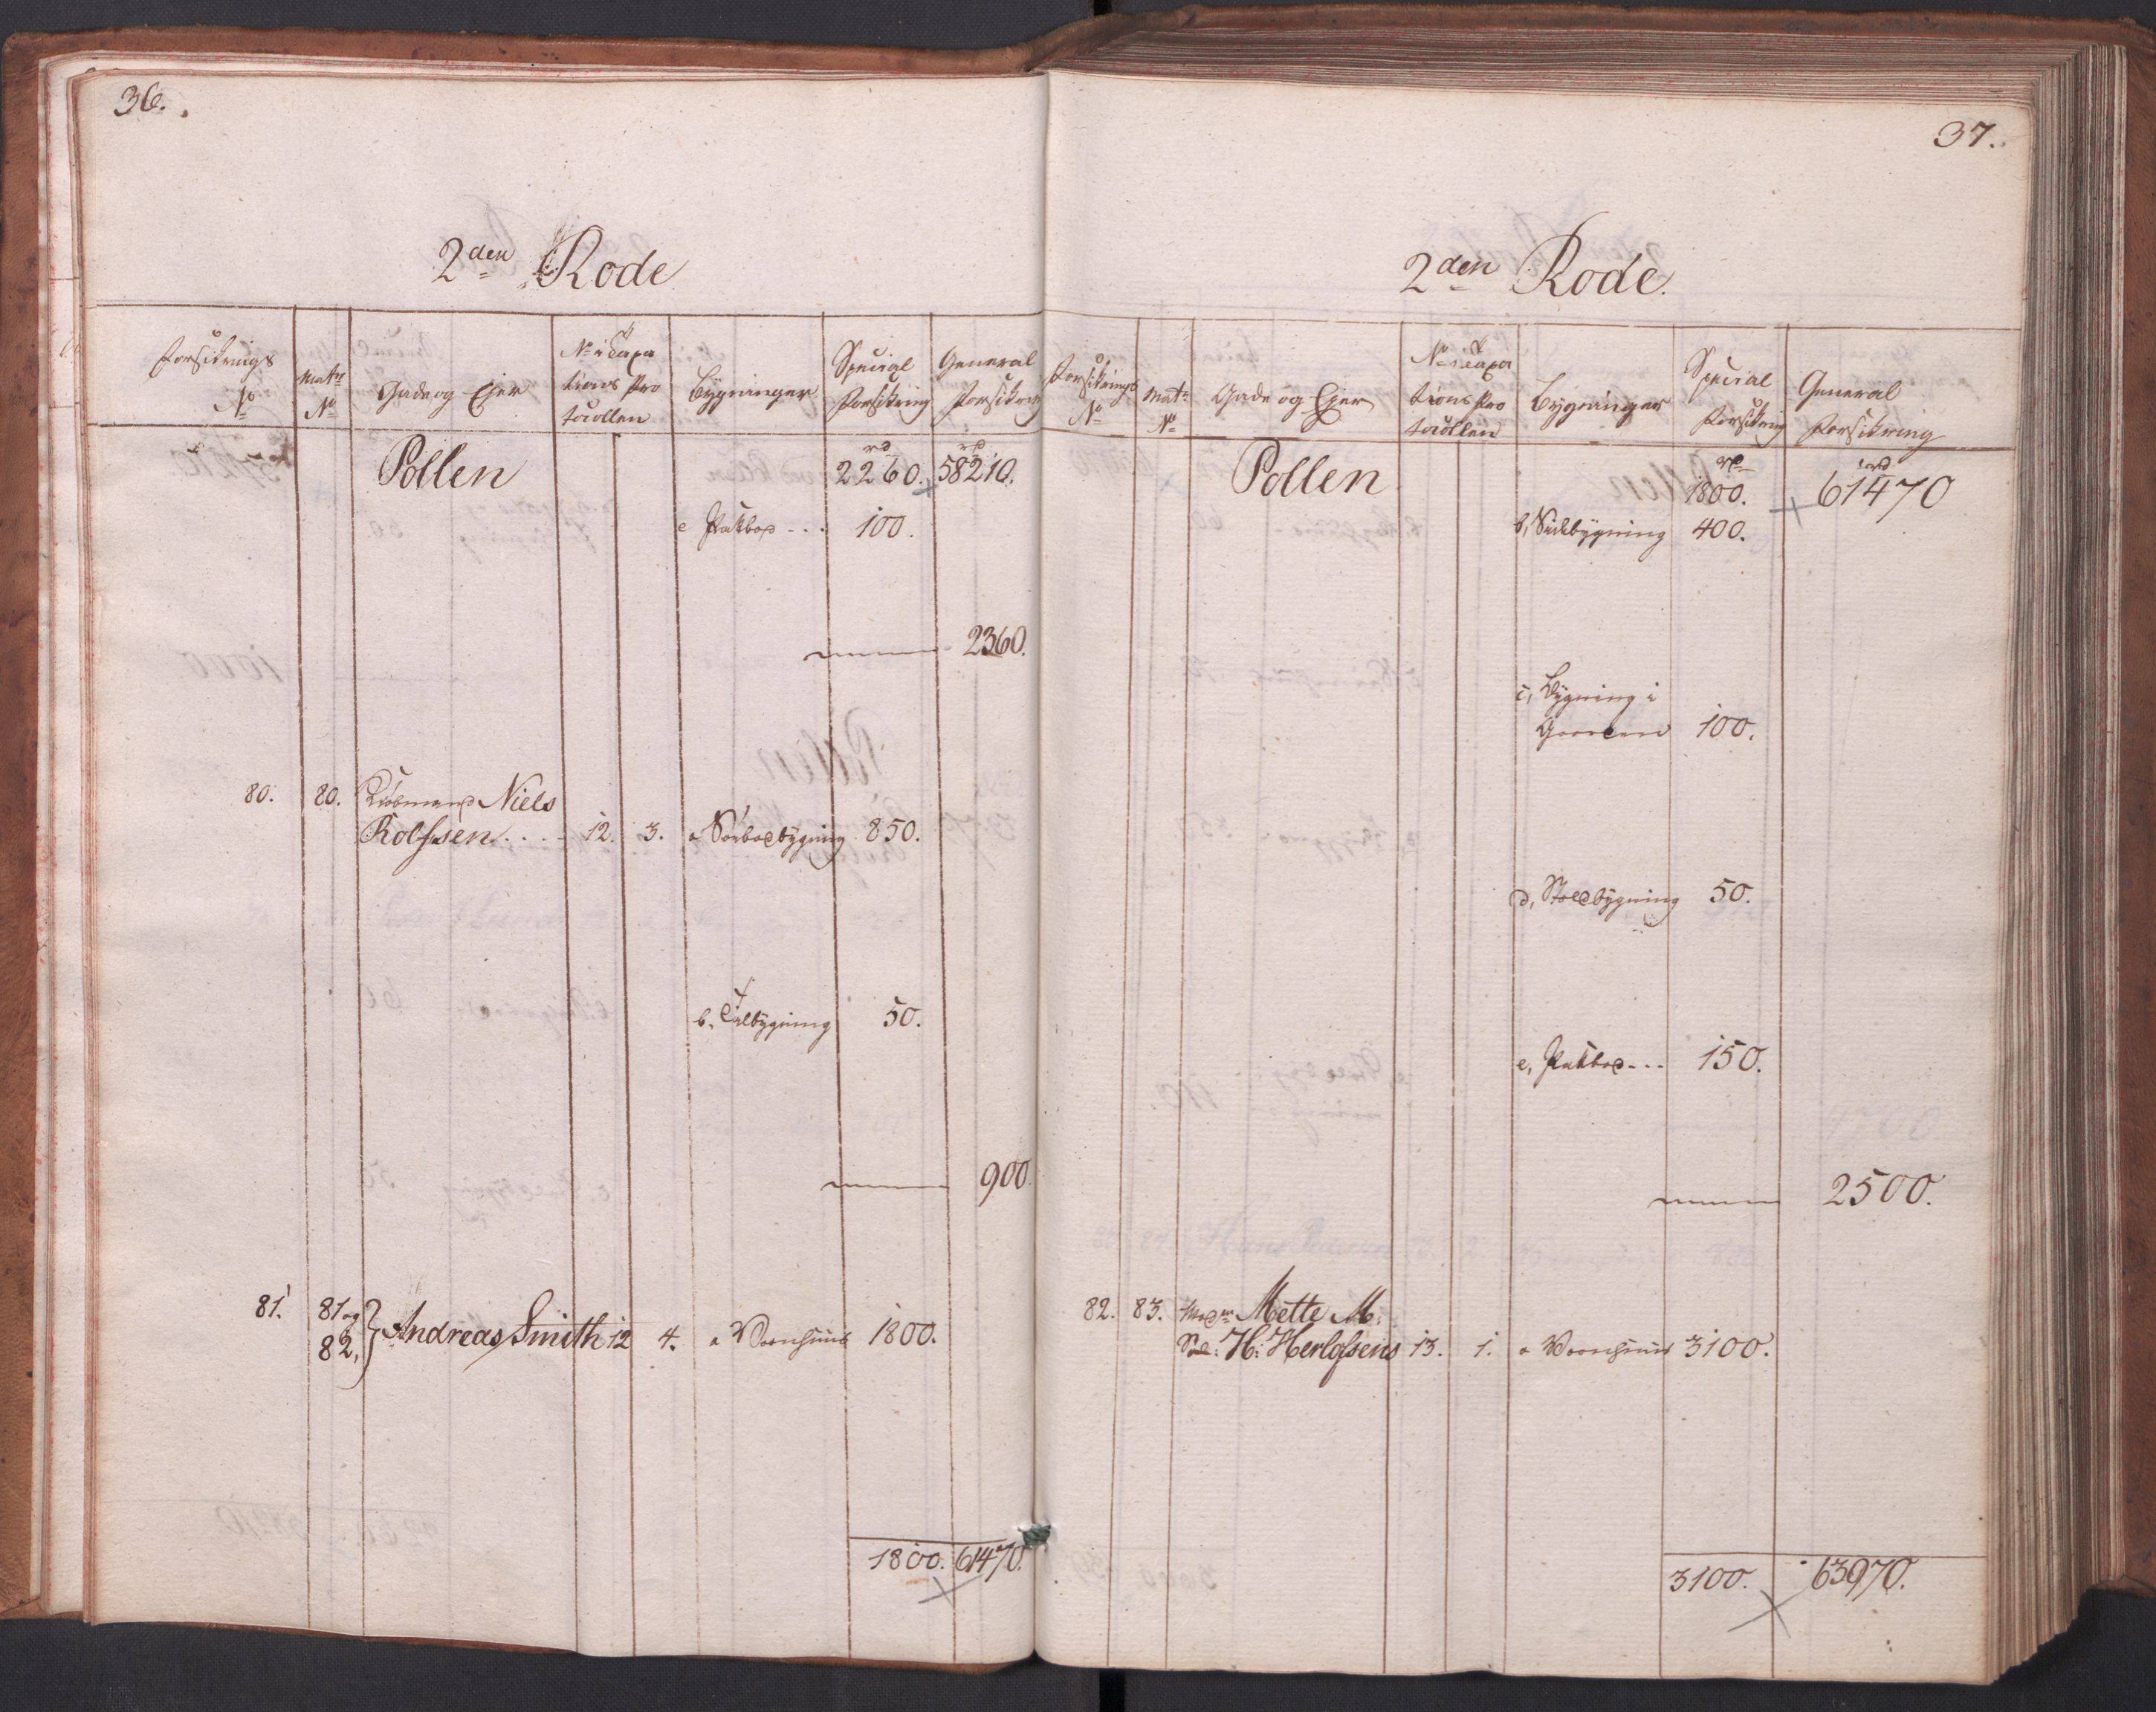 36.
2den Rode
Forsikrings No
Matr No
Gade og Ejer
No i Taxationsprotocollen
Bygninger
Special Forsikring
General Forsikring
Pollen
rd 2260. rd 58210.
e Pakboe --- 100.
2360.
80. 80. Kiøbmand Niels
Rolfsen.... 12. 3. a Søeboebygning 850.
b. Tilbygning 50.
900.
81. 81 og
82, Andreas Smith 12 4. a Vaanhuus 1800.
1800. 61470.
37.
2den Rode.
Forsikrings No
Matr No
Gade og Ejer
No i Taxationsprotocollen
Bygninger
Special Forsikring
General Forsikring
Pollen
rd 1800. rd 61470
b, Sidebygning 400.
c, Bygning i
Gaarden 100.
d, Stoedbygning 50.
e, Pakboe--- 150.
2500.
82. 83. Madm Mette M:
Sal: H: Herlofsens 13. 1. a Vaanhuus 3100.
3100. 63970.